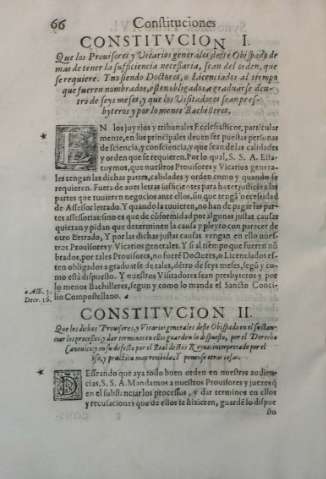 66 Constituciones
CONSTITVCION I.
Que los Prouisores y Vicarios generales deste Obispado de
mas de tener la suficiencia necesaria, sean del orden, que
se requiere. Y no siendo Doctores, o Licenciados al tiempo
que fueren nombrados, esten obligados a graduarse den-
tro de seys meses, y que los Visitadores sean pres-
byteros y por lo menos Bachilleres.
EN los juyzios y tribunales Ecclesiasticos, particular
mente, en los principales deuen ser puestas personas
de sciencia, y consciencia, y que sean de las calidades
y orden que se requieren. Por lo qual, S. S. A. Esta-
tuymos, que nuestros Prouisores y Vicarios genera-
les tengan las dichas partes, calidades y orden como y quando se
requieren. Fuera de auer letras suficientes para hazer justicia a las
partes que tuuieren negocios ante ellos, sin que tenga necessidad
de Assessor letrado. Y quando la tuuiere, no han de pagar las par-
tes assessorias sino es que de conformidad por algunas justas causas
quieran y pidan que determine la causa y pleyto con parecer de
otro letrado, Y por las dichas justas causas vengan en ello nues-
tros Prouisores y Vicarios generales. Y si al tiempo que fueren nõ
brados, por tales Prouisores, no fuere Doctores, o Licenciados es-
ten obligados a graduarse de tales, detro de seys meses, segũ y co-
mo está dispuesto. Y nuestros Visitadores sean presbyteros y por
lo menos Bachilleres, segun y como lo manda el Sancto Conci-
lio Compostellano.
a Act. 3.
Decr. 16.
CONSTITVCION II.
Que los dichos Prouisores, y Vicarios generales deste Obispado en el sustan-
ciar los processos, y dar terminos en ellos guarden lo dispuesto, por el Derecho
Canonico, y en su defecto por el Real destos Reynos interpretado por el
uso, y practica mas reciuida, Y prouee se otras cosas.
DEsseando que aya todo buen orden en nuestras audien-
cias, S. S. A. Mandamos a nuestros Prouisores y juezes q̃
en el substanciar los processos, y dar terminos en ellos
y recusaciones que de ellos se hizieren, guardẽ lo dispue
sto